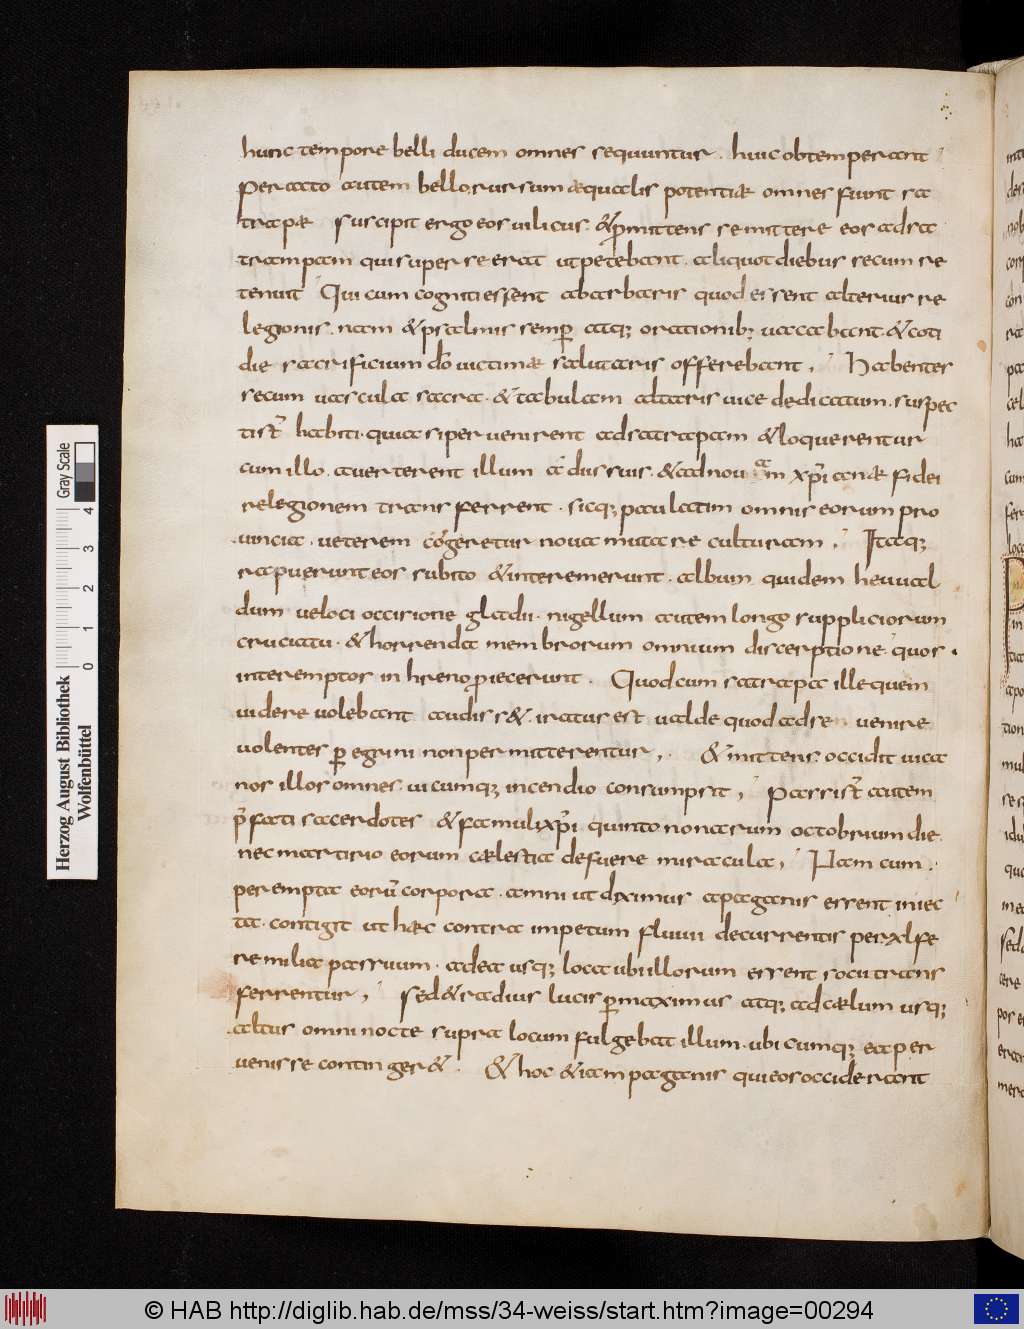 hunc tempore belli ducem omnes sequuntur. huic obtemperant;
Peracto autem bello, rursum æqualis potentiæ omnes fiunt sa
trapæ Suscipit ergo eos uilicus. &p̲mittens se mittere eos ad sa
trampam qui super se erat ut petebant. aliquot diebus secum re
tenuit; Qui cum cogniti essent abarbaris quod essent alterius re
legionis. nam &psalmis semp̲ atq; orationib; uacabant. &coti
die sacrificium dō uictimæ salutaris offerebant; Habentes
secum uascula sacra. & tabulam altaris uice dedicatum. suspec
ti sr̄ habiti. quia si peruenirent ad satrapam & loquerentur
cum illo. auerterent illum a dūs suis. &ad nouam xp̄ianæ fidei
relegionem transferrent. sicq; paulatim omnis eorum pro
uincia. ueterem cogeretur noua mutare culturam; Itaq;
rapuerunt eos subito &interemerunt. album quidem heuual
dum ueloci occisione gladii. nigellum autem longo suppliciorum
cruciatu. & horrenda membrorum omnium discerptione. quos
interemptos in hreno p̲iecerunt. Quod cum satrapa ille quem
uidere uolebant audiss&. iratus est ualde quod ad se uenire
uolentes p̲egrini non permitterentur; & mittens occidit uica
nos illos omnes. uicumq; incendio consumpsit; Passi sr̄ autem
p̄fati sacerdotes & famuli xp̄i quinto nonarum octobrium die.
nec martirio eorum cælestia defuere miracula; Nam cum
perempta eorū corpora. amni ut diximus a paganis essent iniec
ta. contigit ut hæc contra impetum fluuii decurrentis per xl fe
re milia passuum. ad ea usq; loca ubi illorum essent socii trans
ferrentur; Sed &radius lucis p̲maximus atq; ad cælum usq;
altus omni nocte supra locum fulgebat illum. ubicumq; ea per
uenisse conting er&. & hoc &iam paganis qui eos occiderant
Herzog August Bibliothek
Wolfenbüttel
0 1 2 3 4
Gray Scale
© HAB http://diglib.hab.de/mss/34-weiss/start.htm?image=00294